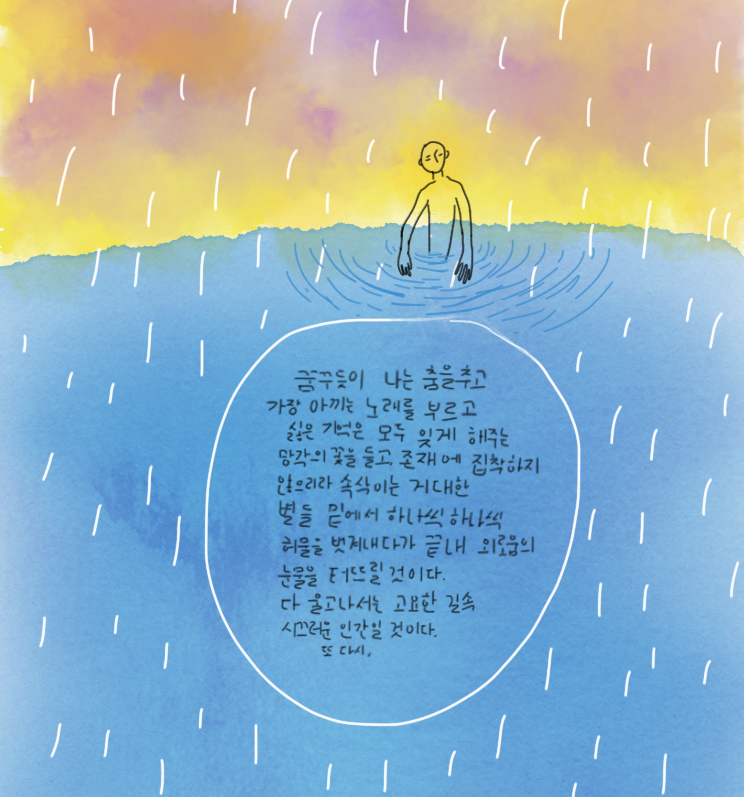 꿈꾸듯이 나는 춤을추고
가장 아끼는 노래를 부르고
싫은 기억은 모두 잊게 해주는
망각의 꽃을 들고, 존재에 집착하지
않으리라 속삭이는 거대한
별들 밑에서 하나씩 하나씩
허물을 벗겨내다가 끝내 외로움의
눈물을 터뜨릴 것이다.
다 울고나서는 고요한 길속
시끄러운 인간일 것이다.
또 다시,